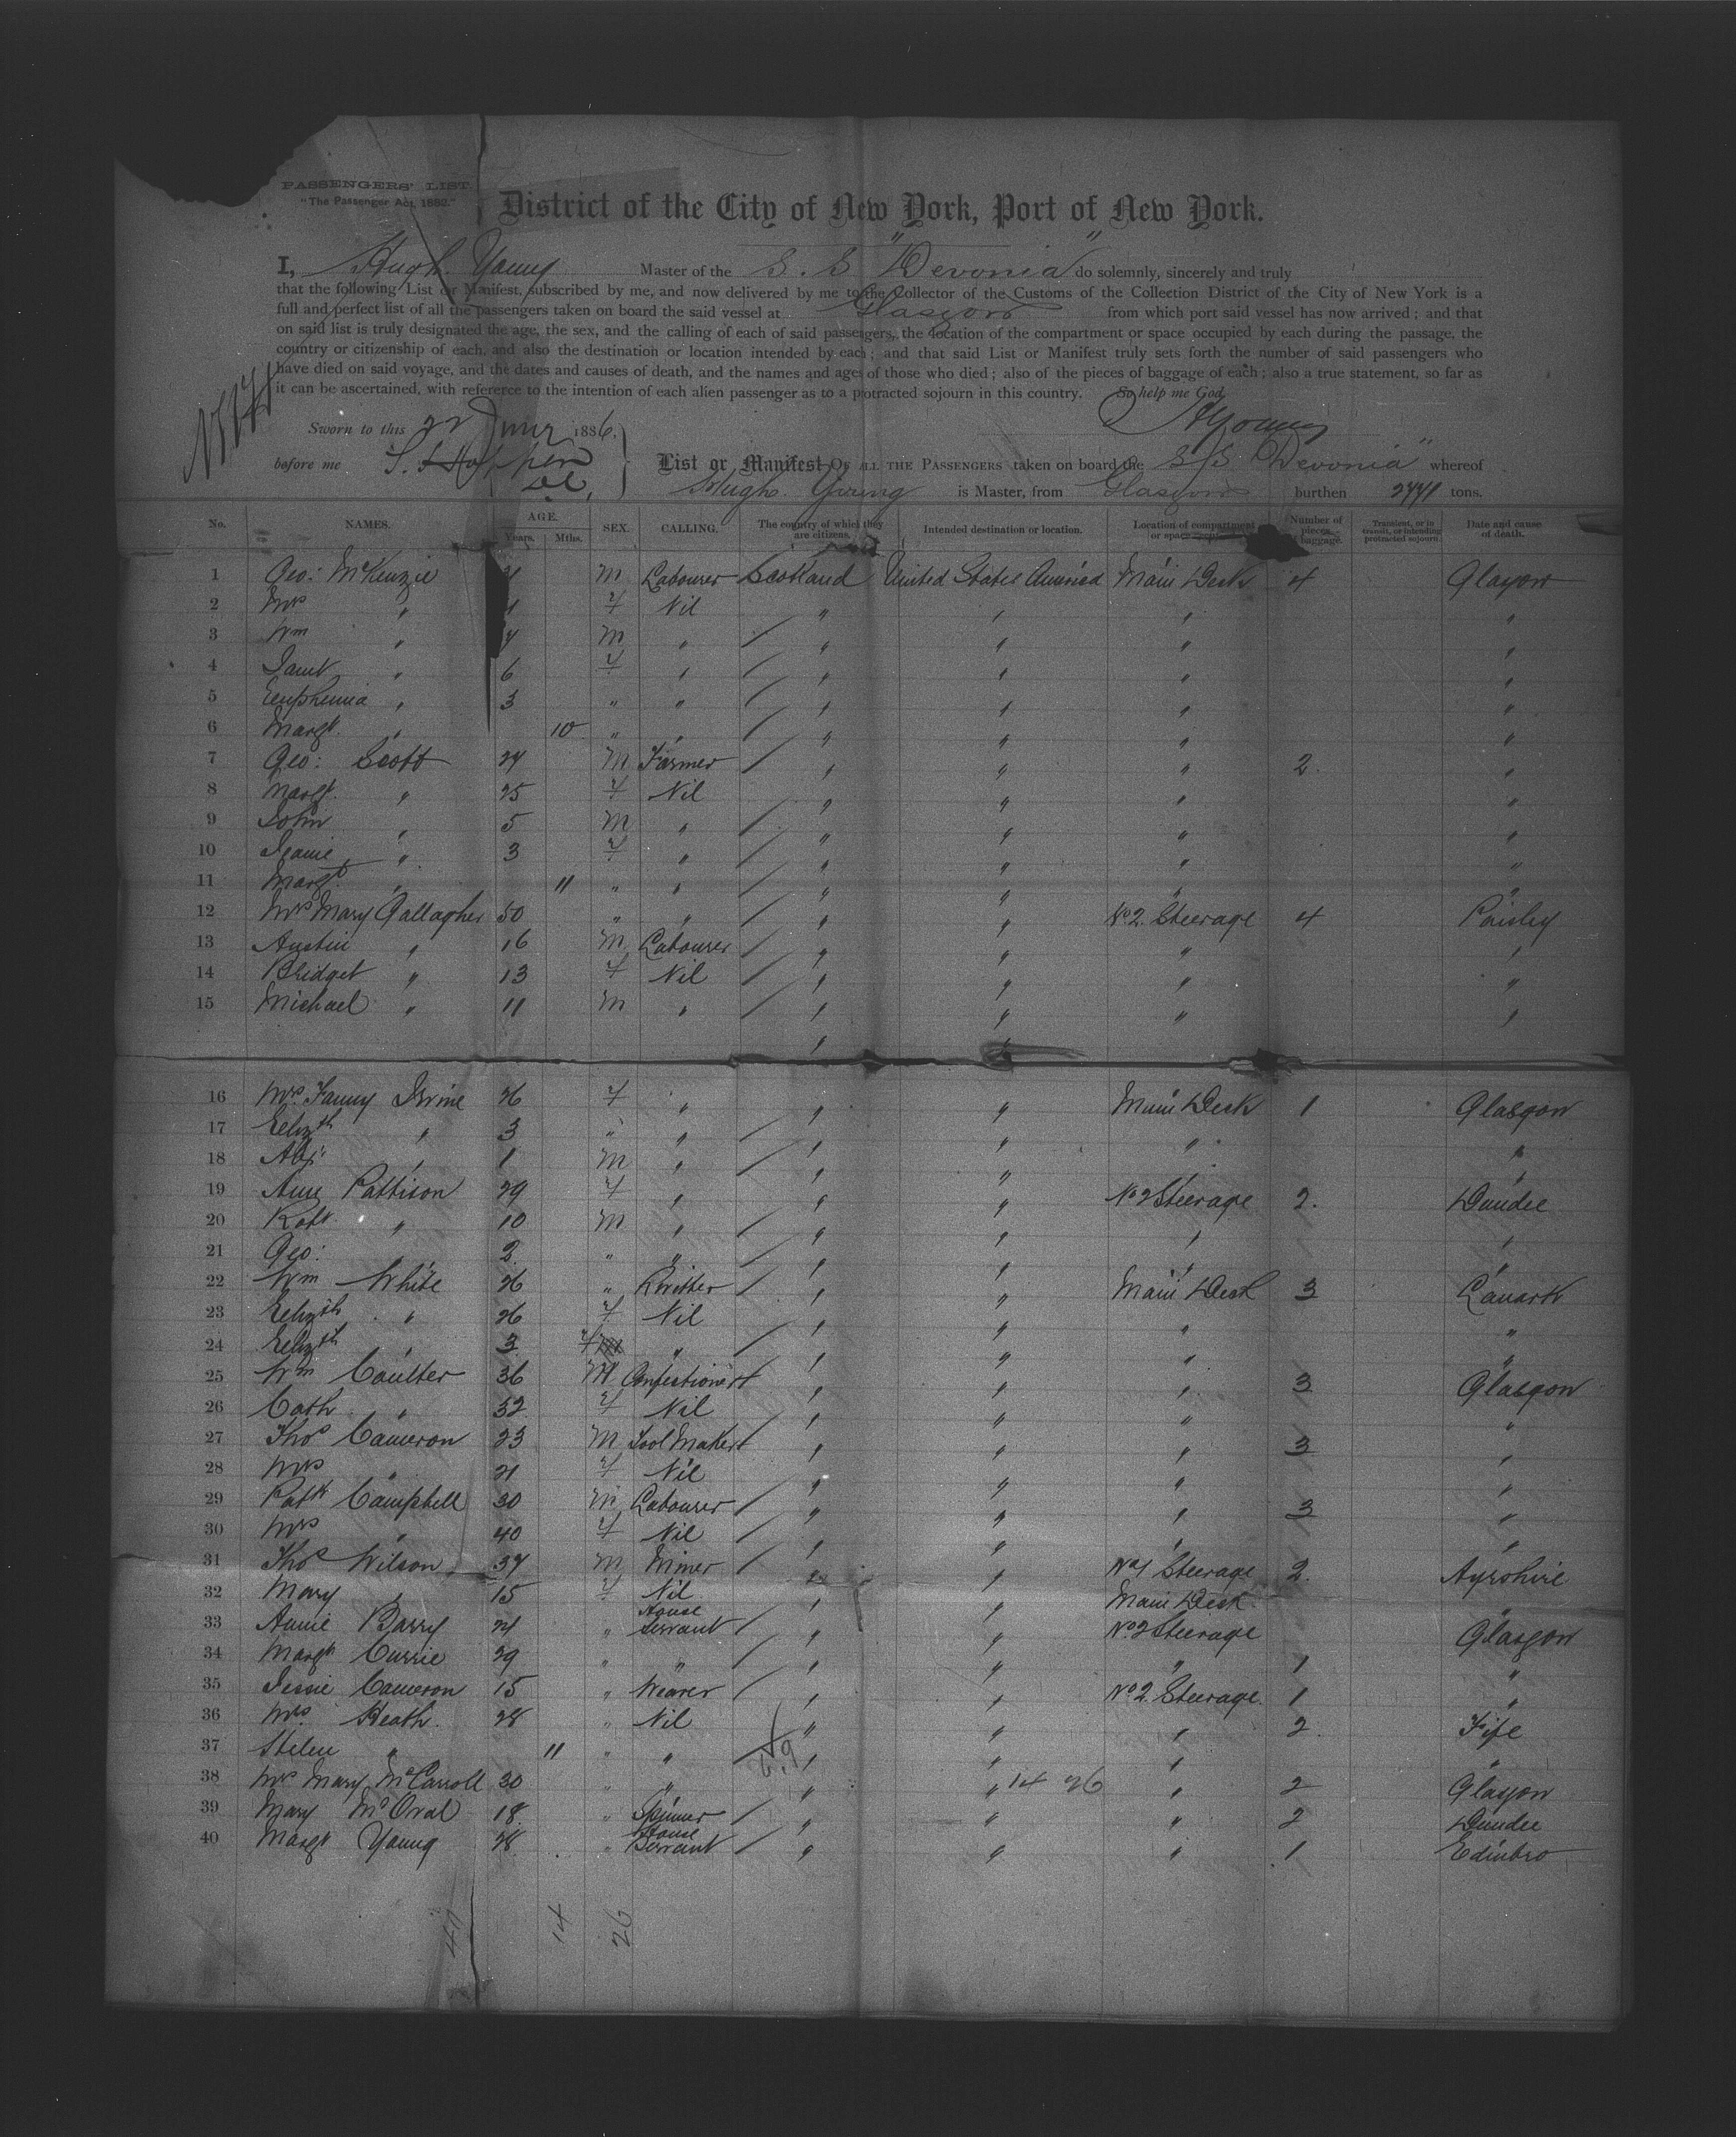 PASSENGERS' LIST.
"The Passenger Act, 1882."
District of the City of New York, Port of New York.
I, Hugh Young Master of the S. S "Devonia" do solemnly, sincerely and truly
that the following List or Manifest, subscribed by me, and now delivered by me to the Collector of the Customs of the Collection District of the City of New York is a
full and perfect list of all the passengers taken on board the said vessel at Glasgow from which port said vessel has now arrived; and that
on said list is truly designated the age, the sex, and the calling of each of said passengers, the location of the compartment or space occupied by each during the passage, the
country or citizenship of each, and also the destination or location intended by each; and that said List or Manifest truly sets forth the number of said passengers who
have died on said voyage, and the dates and causes of death, and the names and ages of those who died; also of the pieces of baggage of each; also a true statement, so far as
it can be ascertained, with reference to the intention of each alien passenger as to a protracted sojourn in this country. So help me God
Sworn to this 22 June 1886, HYoung
before me
List or Manifest OF ALL THE PASSENGERS taken on board the S/S "Devonia" whereof
Hugh Young is Master, from Glasgow burthen tons.
No. NAMES. AGE. Years. Mths. SEX. CALLING. The country of which they are citizens. Intended destination or location. Location of compartment or space Number of pieces baggage. Transient, or in transit, or intending protracted sojourn. Date and cause of death.
1 Geo: McKenzie M Labourer Scotland United States America Main Deck 4 Glasgow
2 Mrs " f Nil " " " "
3 Wm " M " " " " "
4 Janet " 6 f " " " " "
5 Euphemia " 3 " " " " " "
6 Margt. " 10 " " " " " "
7 Geo: Scott 24 M Farmer " " " 2 "
8 Margt. " 25 f Nil " " " "
9 John " 5 M " " " " "
10 Jeanie " 3 f " " " " "
11 Margt. " 11 " " " " " "
12 Mrs Mary Gallagher 50 " " " " No 2 Steerage 4 Paisley
13 Austin " 16 M Labourer " " " "
14 Bridget " 13 f Nil " " " "
15 Michael " 11 M " " " " "
16 Mrs. Fanny Irvine 26 f " " " Main Deck 1 Glasgow
17 Elizth " 3 " " " " " "
18 Alex. " 1 M " " " " "
19 Ann Pattison 29 f " " " No 2 Steerage 2. Dundee
20 Robt. " 10 M " " " " "
21 Geo: " 2 " " " " " "
22 Wm White 26 " " " Main Deck 3 Lanark
23 Elizth " 26 f Nil " " " "
24 Elizth " 3 f " " " " "
25 Wm Coulter 36 M Confectioner " " " 3 Glasgow
26 Cath " 32 f Nil " " " "
27 Thos Cameron 23 M Tool Maker " " " 3 "
28 Mrs " 21 f Nil " " " "
29 Patk Campbell 30 M Labourer " " " 3 "
30 Mrs " 40 f Nil " " " "
31 Thos Wilson 37 M Miner " " No 1 Steerage 2. Ayrshire
32 Mary " 15 f Nil " " Main Deck "
33 Annie Barry 21 " House Servant " " No 2 Steerage Glasgow
34 Margt Currie 29 " " " " " 1 "
35 Jessie Cameron 15 " Weaver " " No 2 Steerage 1 "
36 Mrs. Heath 28 " Nil " " " 2. Fife
37 Helen " 11 " " " " " "
38 Mrs Mary McCarroll 30 " " " " 14 26 " 2 Glasgow
39 Mary 18 " Spinner " " " 2 Dundee
40 Margt Young 28 " House Servant " " " 1 Edinbro
40 14 26